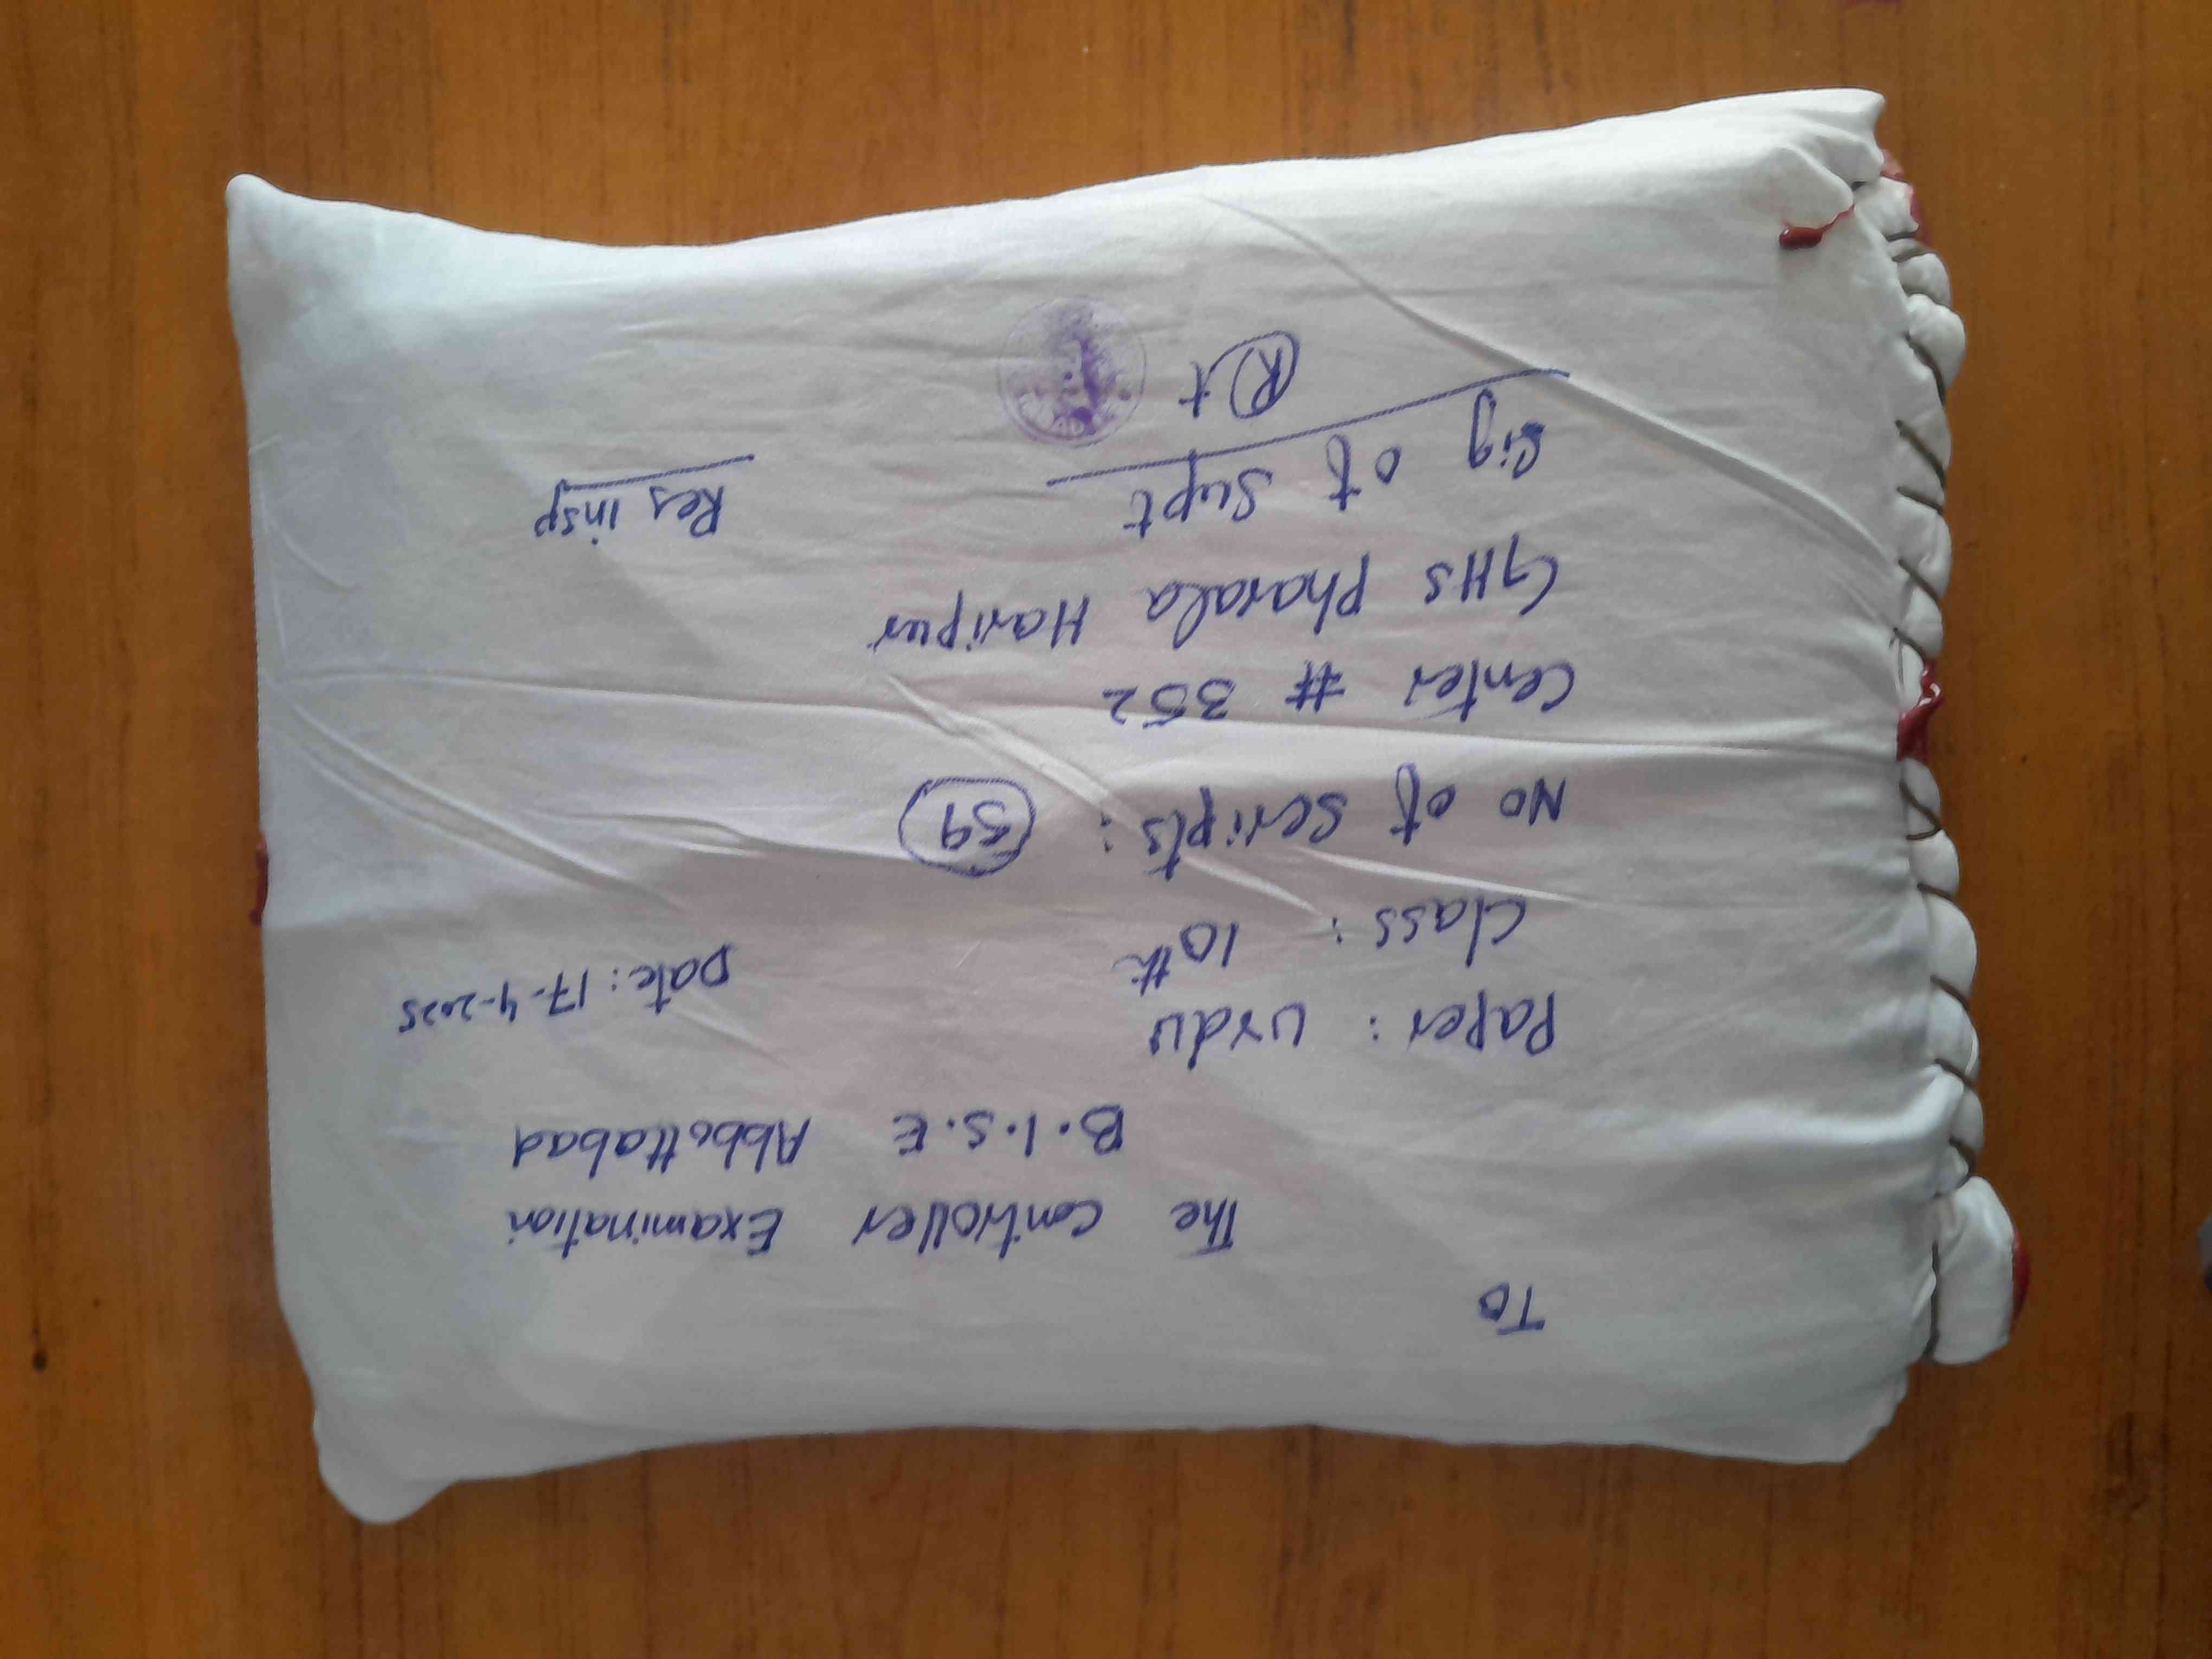 To
The controller Examination
B.I.S.E Abbottabad
Paper: Urdu
Date: 17-4-2025
Class: 10th
No of Scripts: 39
Center # 352
GHS Pharala Haripur
Sig of Supt
Res insp